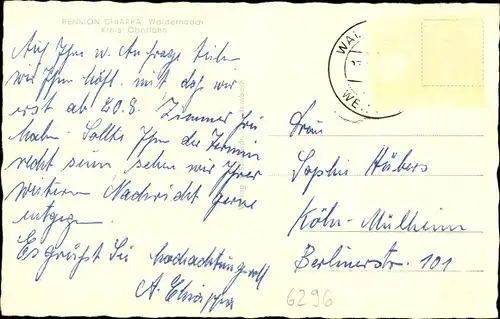 PENSION CHIAPPA, Waldernbach
Kreis Oberlahn
Auf Ihre w. Anfrage teilen
wir Ihnen höfl. mit daß wir
erst ab 20.8. Zimmer frei
haben. Sollte Ihnen der Termin
recht sein sehen wir Ihrer
weiteren Nachricht gerne
entgegen
Es grüßt Sie hochachtungsvoll
A. Chiappa
Frau
Sophie Hübers
Köln-Mülheim
Berlinerstr. 101
6296